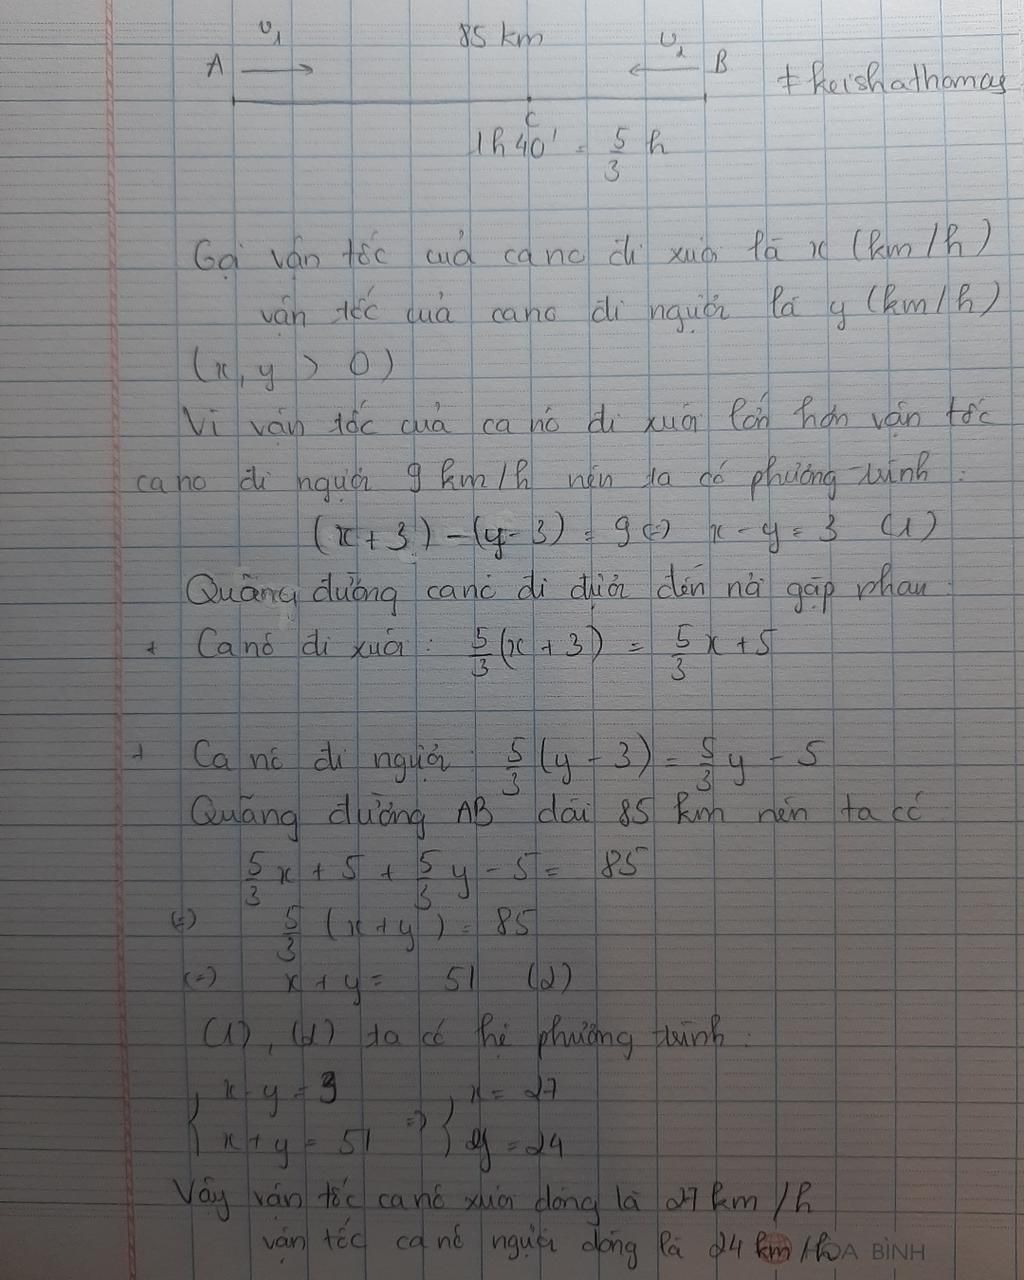 v₁ 85 km v₂
A B ‡ keishathomas
C
1h 40' = 5/3 h
Gọi vận tốc của cano đi xuôi là x (km/h)
vận tốc của cano đi ngược là y (km/h)
(x, y > 0)
Vì vận tốc của ca nô đi xuôi lớn hơn vận tốc
cano đi ngược 9 km/h nên ta có phương trình:
(x + 3) - (y - 3) = 9 (=) x - y = 3 (1)
Quãng đường canô đi được đến nơi gặp nhau
+ Canô đi xuôi: 5/3 (x + 3) = 5/3 x + 5
+ Ca nô đi ngược: 5/3 (y - 3) = 5/3 y - 5
Quãng đường AB dài 85 km nên ta có
5/3 x + 5 + 5/3 y - 5 = 85
(=) 5/3 (x + y) = 85
(=) x + y = 51 (2)
(1), (2) ta có hệ phương trình:
{ x - y = 3 { x = 27
{ x + y = 51 => { y = 24
Vậy vận tốc canô xuôi dòng là 27 km/h
vận tốc canô ngược dòng là 24 km/h
HÒA BÌNH